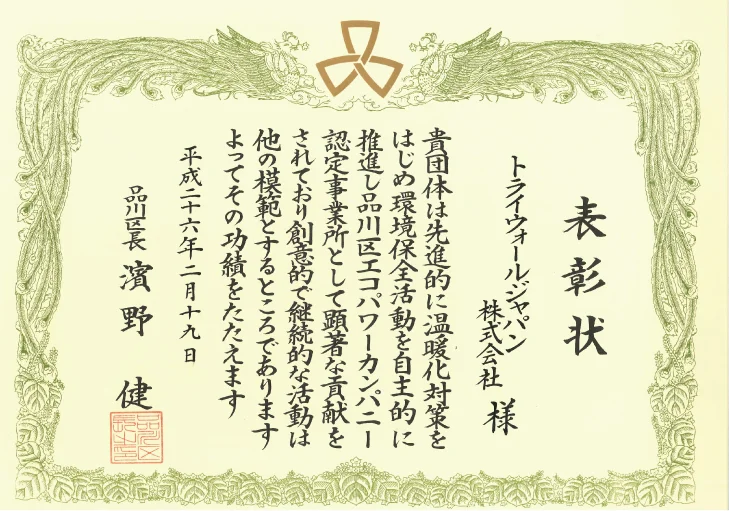 表彰状
トライウォールジャパン
株式会社 様
貴団体は先進的に温暖化対策を
はじめ環境保全活動を自主的に
推進し品川区エコパワーカンパニー
認定事業所として顕著な貢献を
されており創意的で継続的な活動は
他の模範とするところであります
よってその功績をたたえます
平成二十六年二月十九日
品川区長 濱野 健